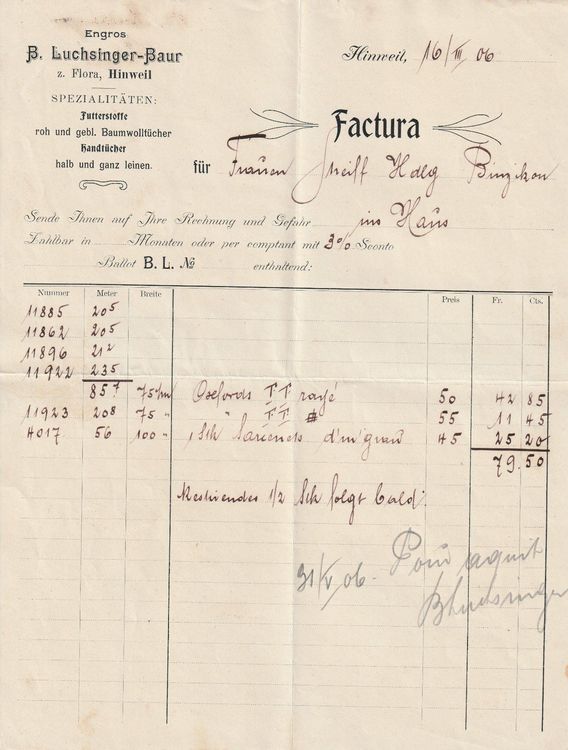 Engros
B. Luchsinger-Baur
z. Flora, Hinweil
SPEZIALITÄTEN:
Futterstoffe
roh und gebl. Baumwolltücher
Handtücher
halb und ganz leinen.
Hinweil, 16/III 06
Factura
für Frauen Streiff Hdlg Binzikon
Sende Ihnen auf Ihre Rechnung und Gefahr ins Haus
Zahlbar in Monaten oder per comptant mit 3% Sconto
Ballot B. L. № enthaltend:
Nummer Meter Breite Preis Fr. Cts.
11885 20⁵
11862 20⁵
11896 21²
11922 23⁵
85⁷ 75 cm Oxfords TT rayé 50 42 85
11923 20⁸ 75 " " TT # 55 11 45
4017 56 100 " 1 Stk Sarcenets d'm'grau 45 25 20
79.50
1/2 Stk folgt bald.
31/V 06. Pour aquit
BLuchsinger